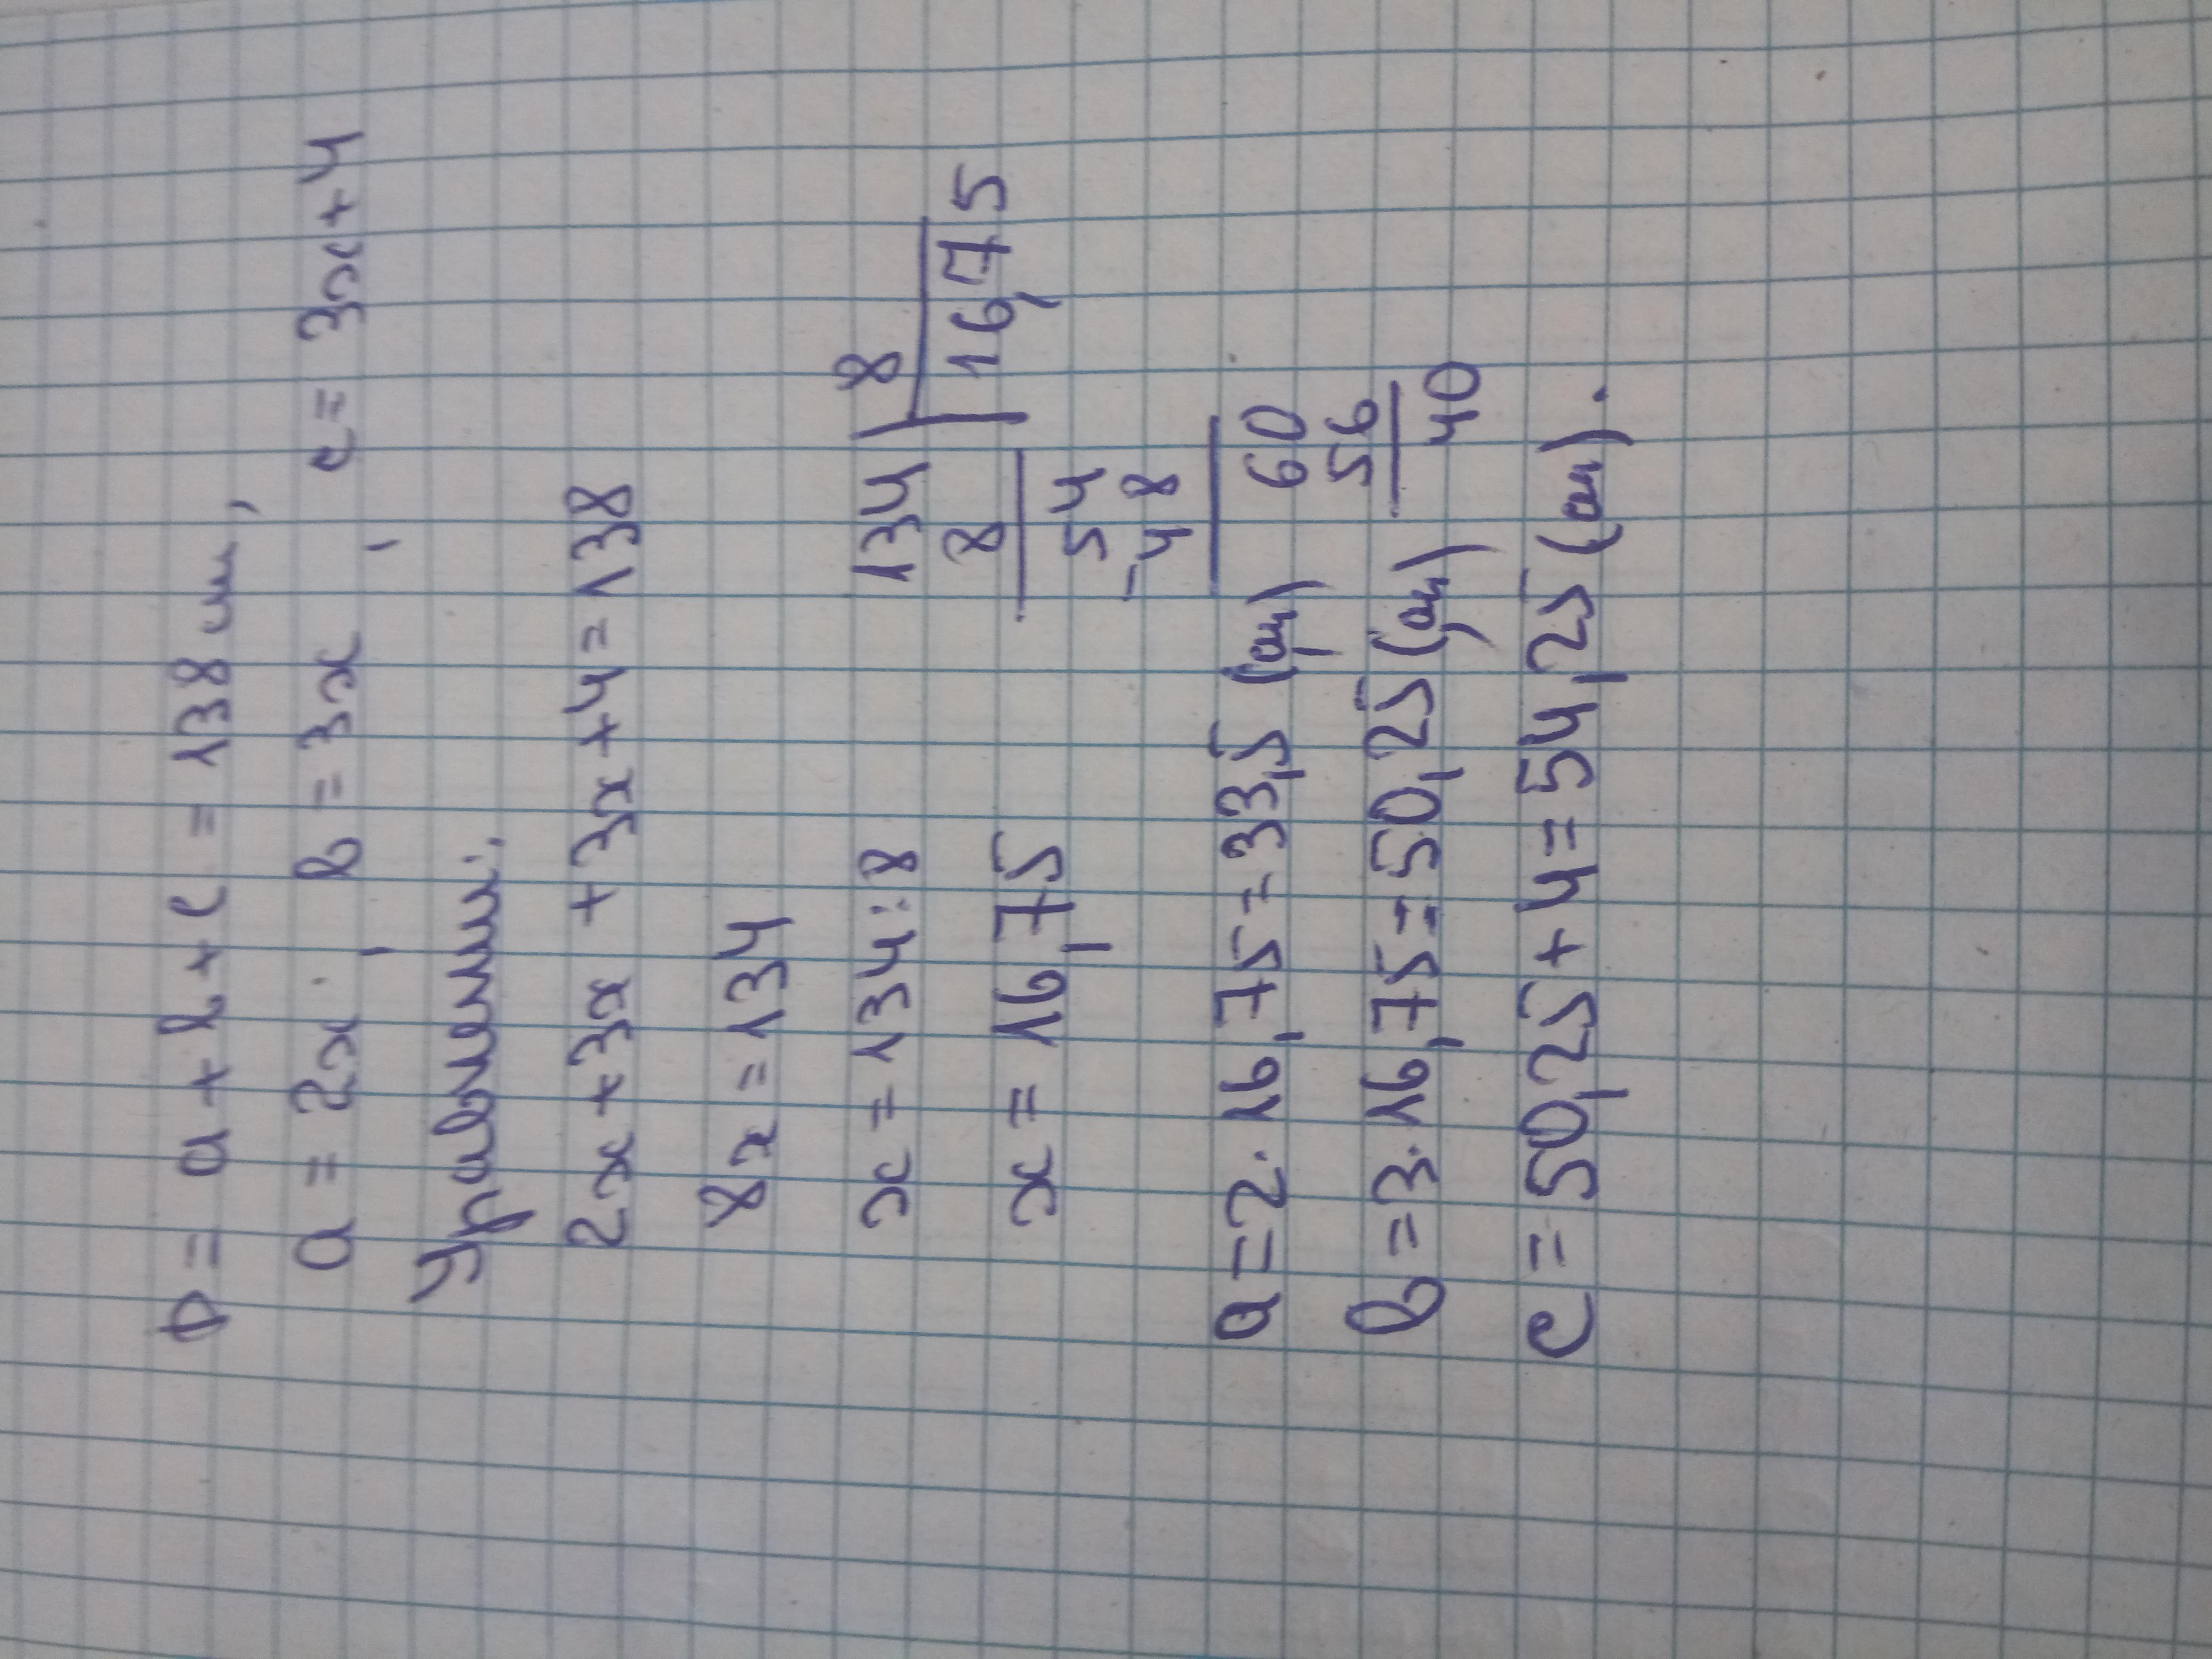 P = a + b + c = 138 см,
a = 2x, b = 3x, c = 3x+4
Уравнение:
2x+3x+3x+4=138
8x=134
x=134:8
134 | 8
8 | 16,75
54
-48
60
56
40
x = 16,75
a=2·16,75=33,5 (см)
b=3·16,75=50,25 (см)
c=50,25+4=54,25 (см).